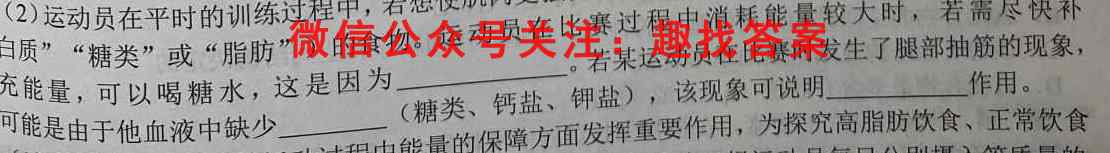 (2)运动员在平时的训练过程中,若想使肌肉
运动员在比赛过程中消耗能量较大时,若需尽快补
白质”“糖类”或“脂肪”)的食物。
微信公众号关注:趣找答案
充能量,可以喝糖水,这是因为________。若某运动员在比赛时发生了腿部抽筋的现象,
可能是由于他血液中缺少________(糖类、钙盐、钾盐),该现象可说明________作用。
过程中能量的保障方面发挥重要作用,为探究高脂肪饮食、正常饮食